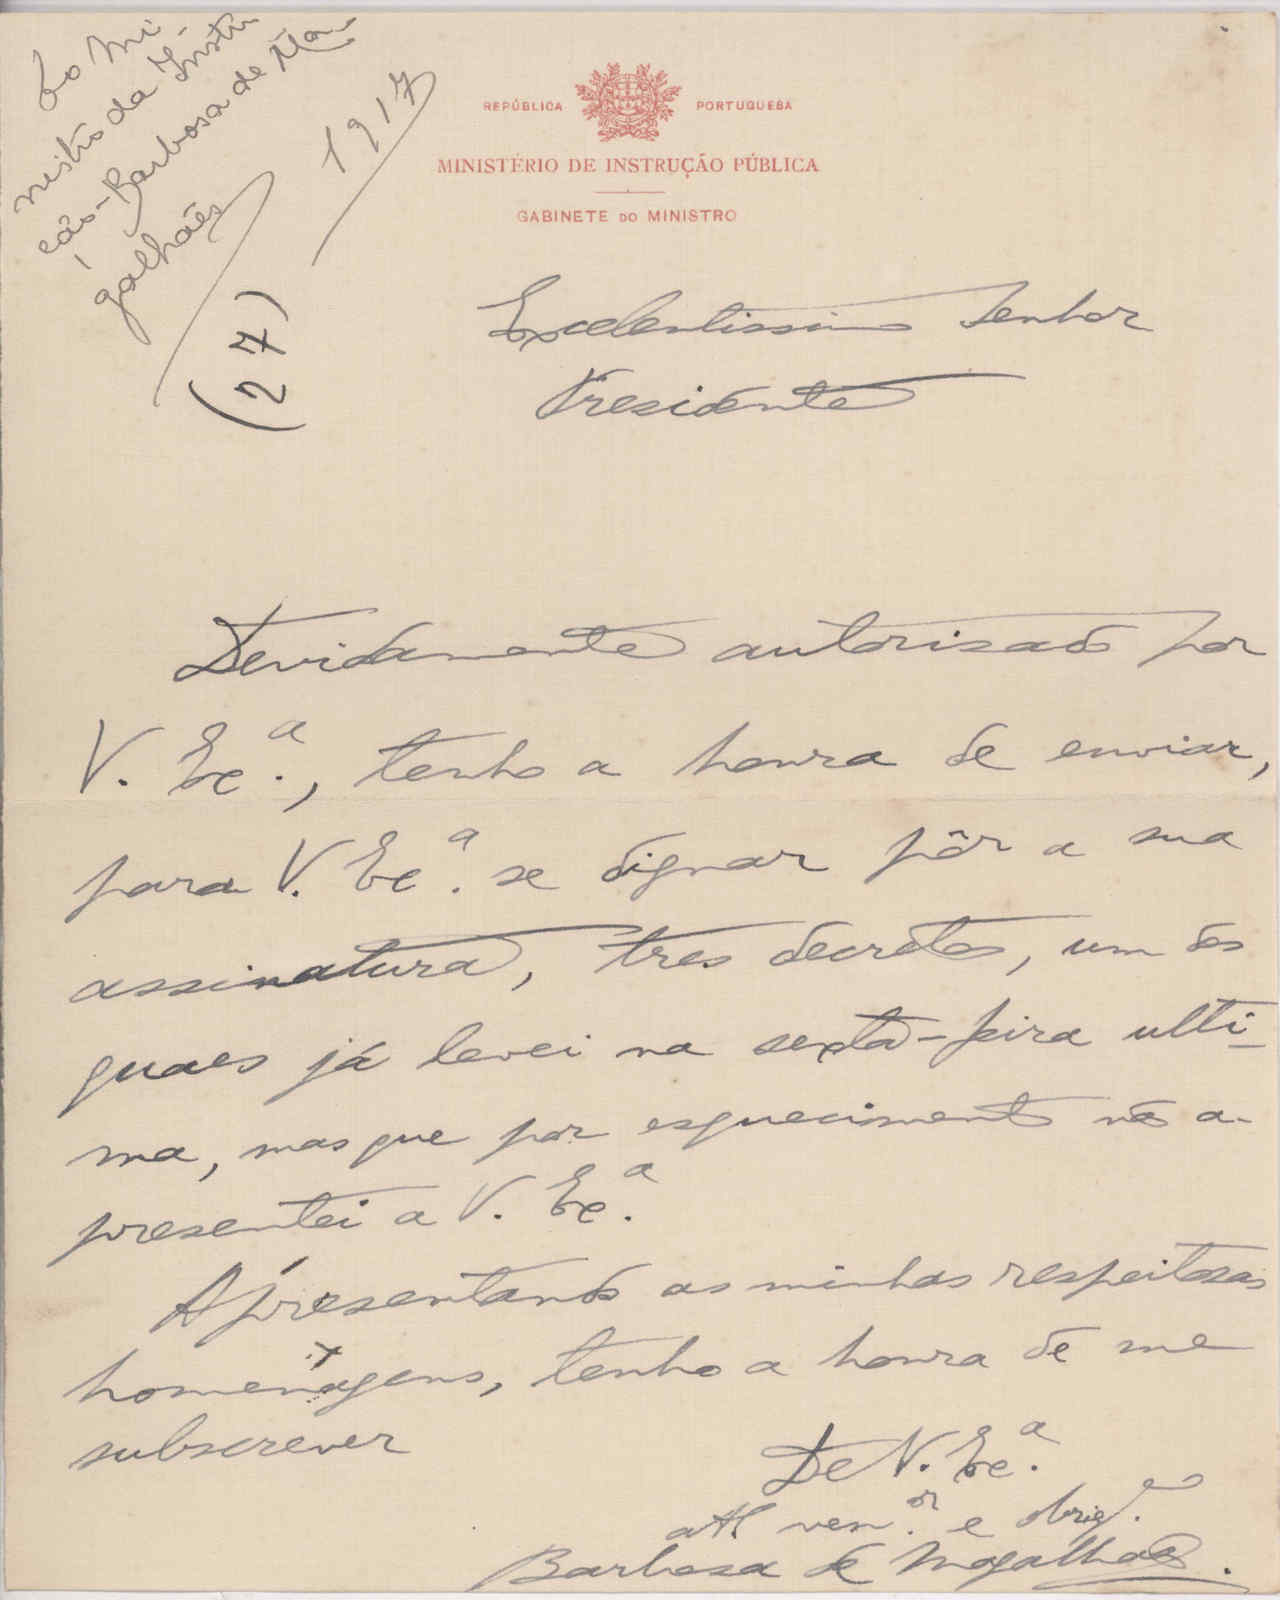 Do Mi-
nistro da Instru
ção-Barbosa de Ma-
galhães
1917
(27)
REPÚBLICA PORTUGUESA
MINISTÉRIO DE INSTRUÇÃO PÚBLICA
GABINETE DO MINISTRO
Excelentissimo Senhor
Presidente
Devidamente autorisado por
V. Exc.ª, tenho a honra de enviar,
para V. Exc.ª se dignar pôr a sua
assinatura, tres decretos, um dos
quaes já levei na sexta-feira ulti-
ma, mas que por esquecimento não a-
presentei a V. Exc.ª
Apresentando as minhas respeitosas
homenagens, tenho a honra de me
subscrever
De V. Exc.ª
att. ven.or e obrig.o
Barbosa de Magalhães.